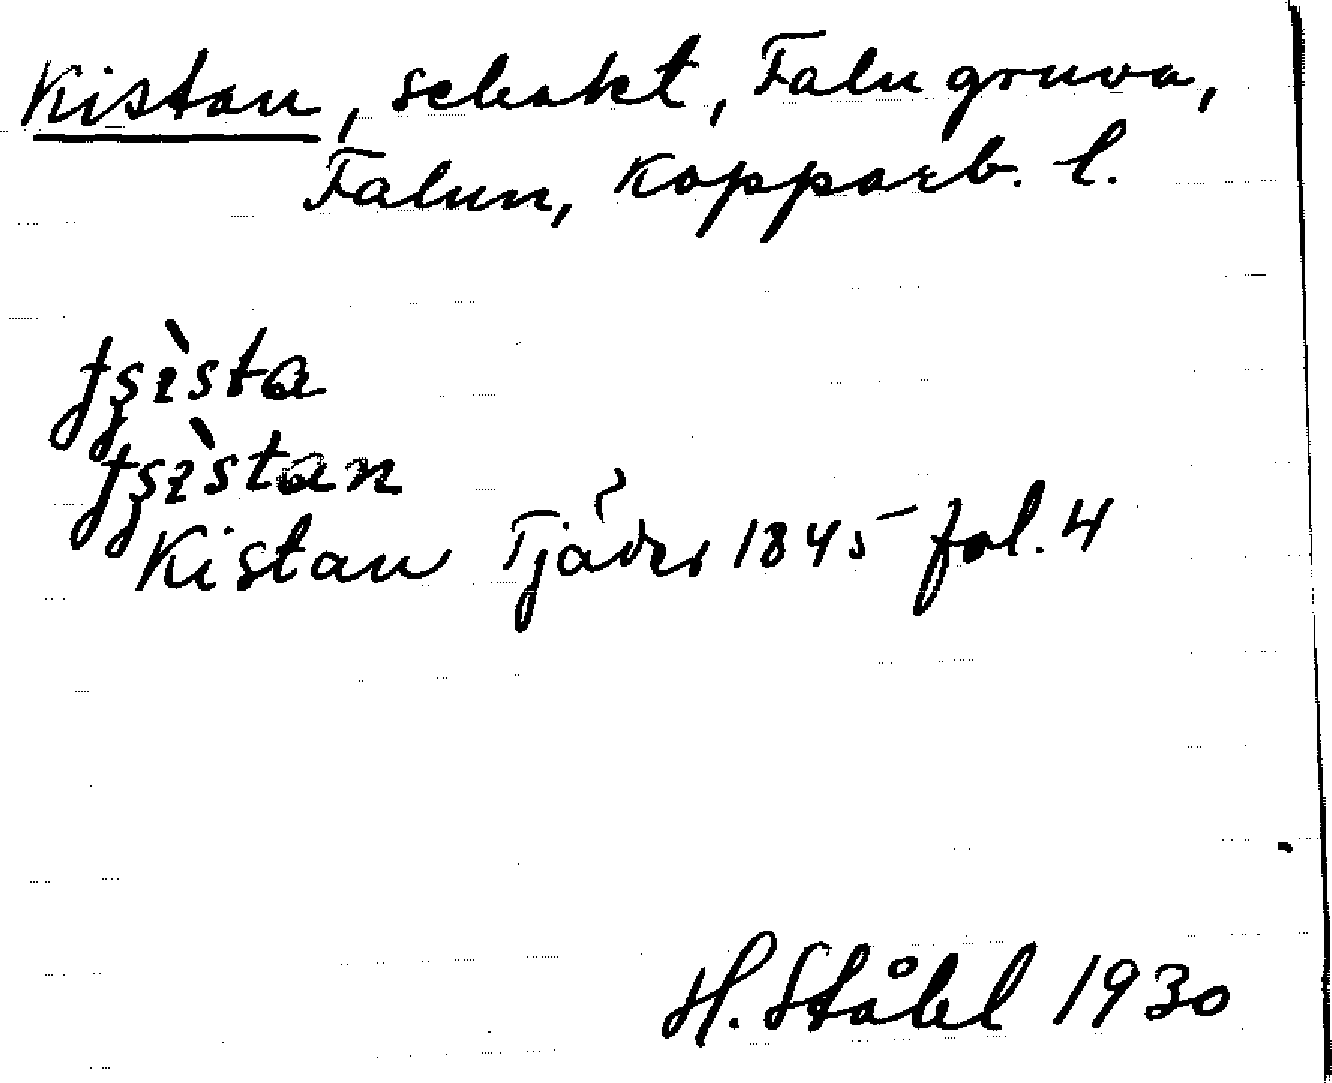 Kistan, schakt, Falu gruva,
Falun, Kopparb. l.
Kistan Tjäder 1845 fol. 4
H. Ståhl 1930